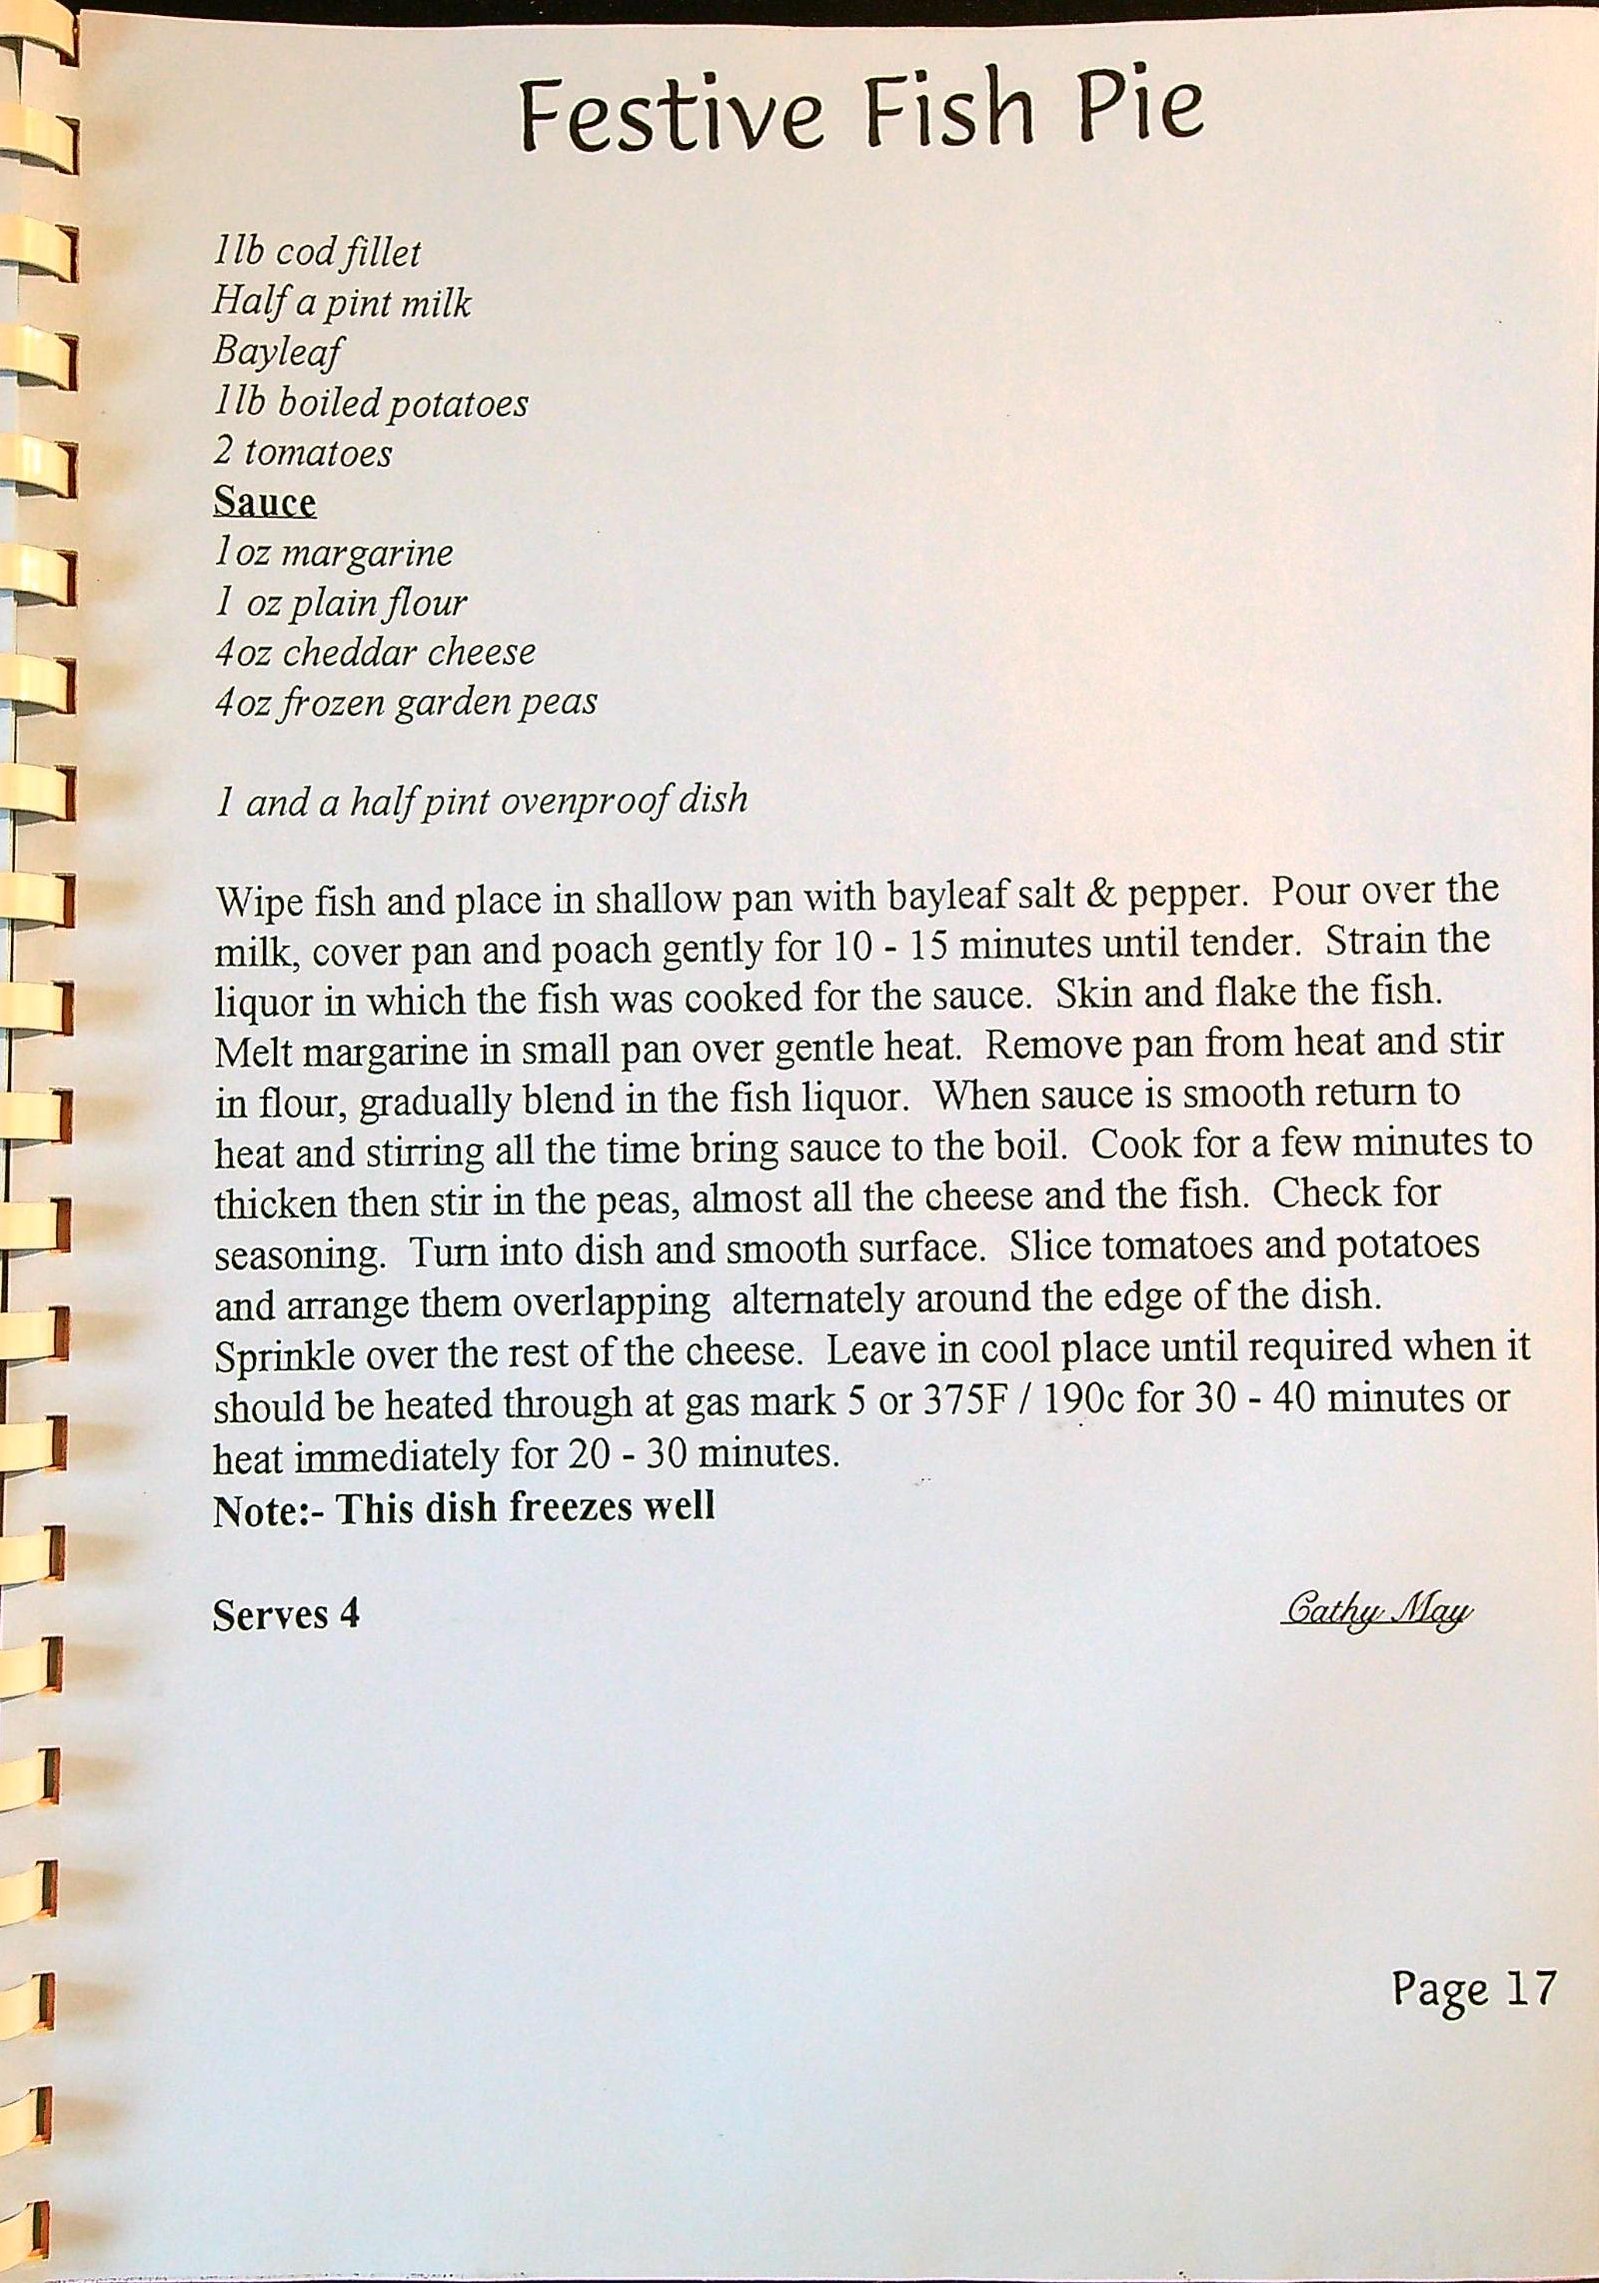 Festive Fish Pie
1lb cod fillet
Half a pint milk
Bayleaf
1lb boiled potatoes
2 tomatoes
Sauce
1oz margarine
1 oz plain flour
4oz cheddar cheese
4oz frozen garden peas
1 and a half pint ovenproof dish
Wipe fish and place in shallow pan with bayleaf salt & pepper.  Pour over the
milk, cover pan and poach gently for 10 - 15 minutes until tender.  Strain the
liquor in which the fish was cooked for the sauce.  Skin and flake the fish.
Melt margarine in small pan over gentle heat.  Remove pan from heat and stir
in flour, gradually blend in the fish liquor.  When sauce is smooth return to
heat and stirring all the time bring sauce to the boil.  Cook for a few minutes to
thicken then stir in the peas, almost all the cheese and the fish.  Check for
seasoning.  Turn into dish and smooth surface.  Slice tomatoes and potatoes
and arrange them overlapping  alternately around the edge of the dish.
Sprinkle over the rest of the cheese.  Leave in cool place until required when it
should be heated through at gas mark 5 or 375F / 190c for 30 - 40 minutes or
heat immediately for 20 - 30 minutes.
Note:- This dish freezes well
Serves 4
Cathy May
Page 17